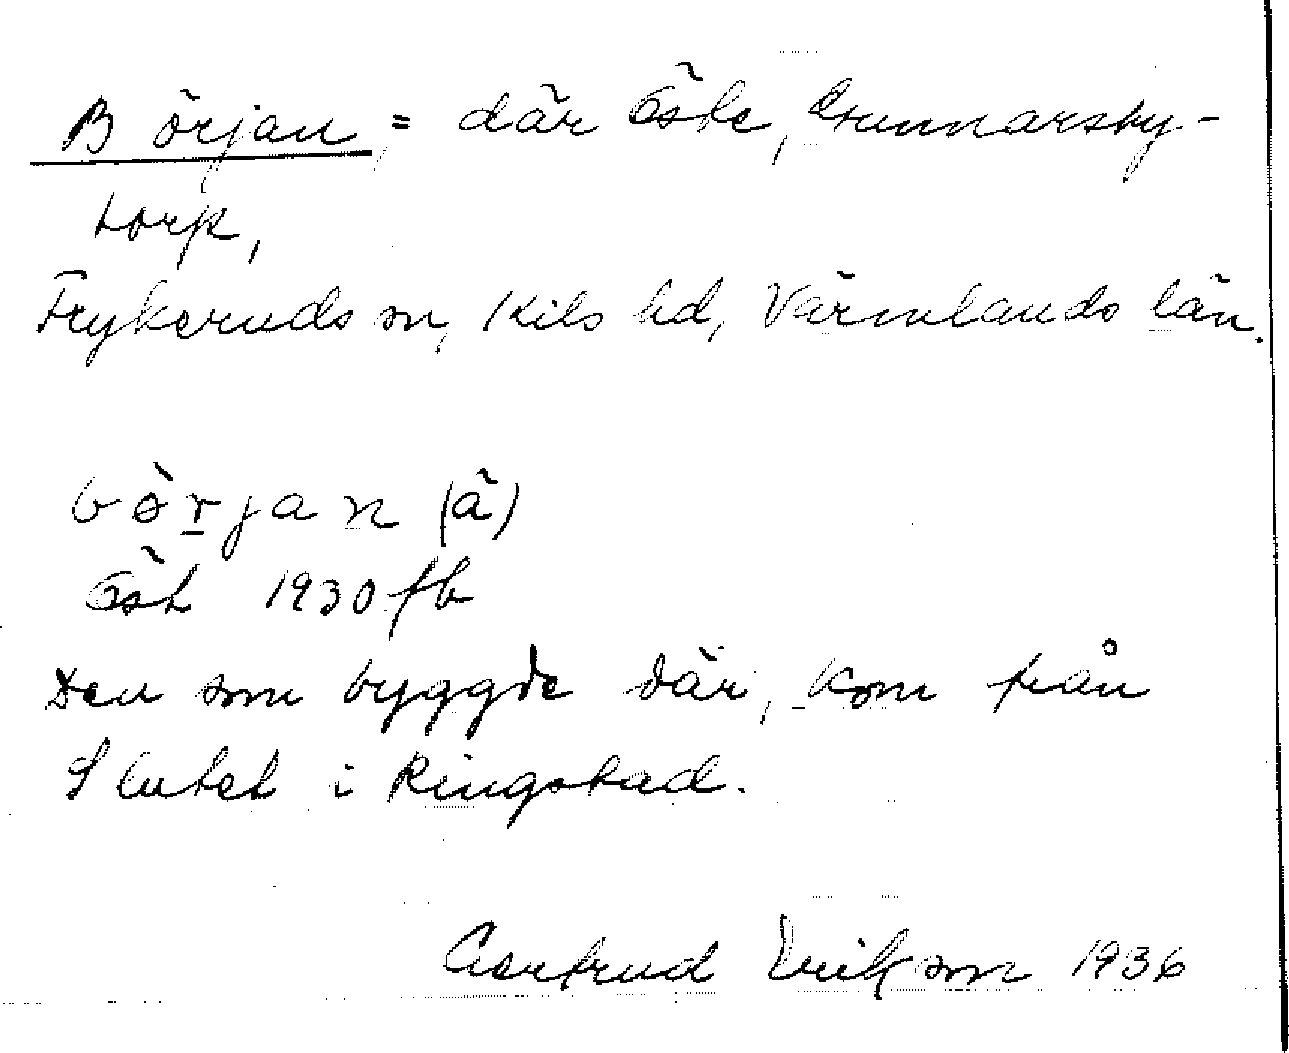 Början = där Öste, Gunnarsby-
torp,
Frykeruds sn, Kils hd, Värmlands län.
bòrjan (ã)
Öst 1930 fb
Den som byggde där, kom från
Slutet i Ringstad.
Gertrud Erikson 1936